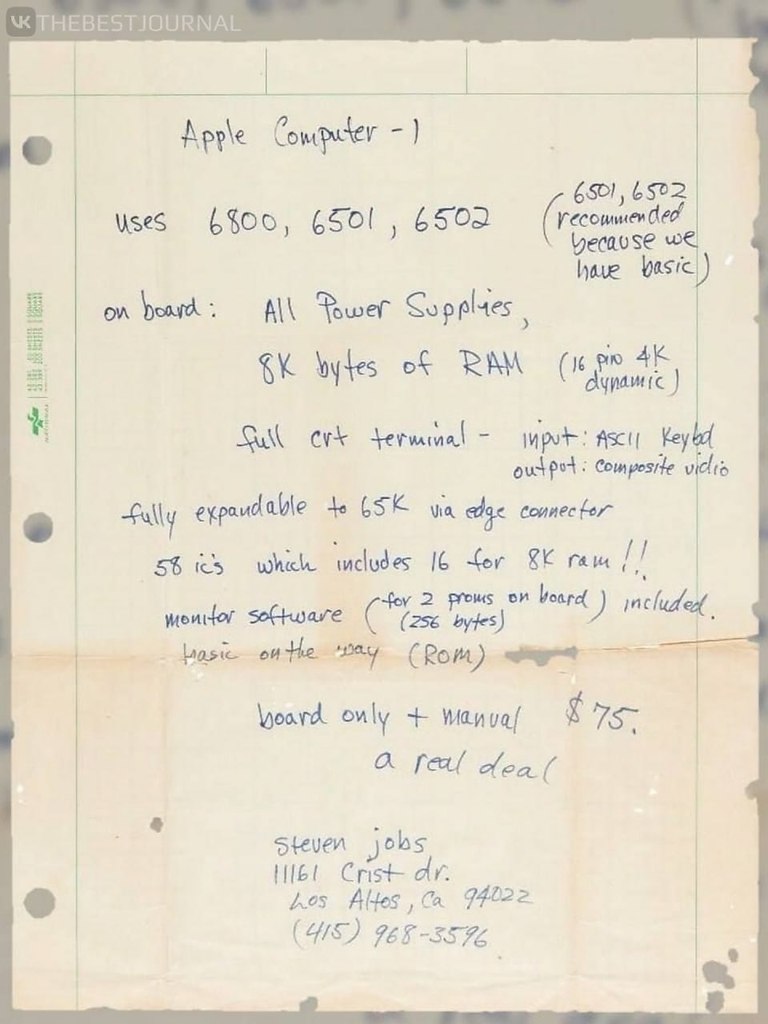 THEBESTJOURNAL
Apple Computer - 1
uses 6800, 6501, 6502 (6501, 6502
recommended
because we
have basic)
on board: All Power Supplyies,
8K bytes of RAM (16 pin 4K
dynamic)
full crt terminal - input: ASCII Keybd
output: composite vidio
fully expandable to 65K via edge connector
58 ic's which includes 16 for 8K ram!!
monitor software (for 2 proms on board) included.
(256 bytes)
basic on the way (ROM)
board only + manual $75.
a real deal
steven jobs
11161 Crist dr.
Los Altos, Ca 94022
(415) 968-3596